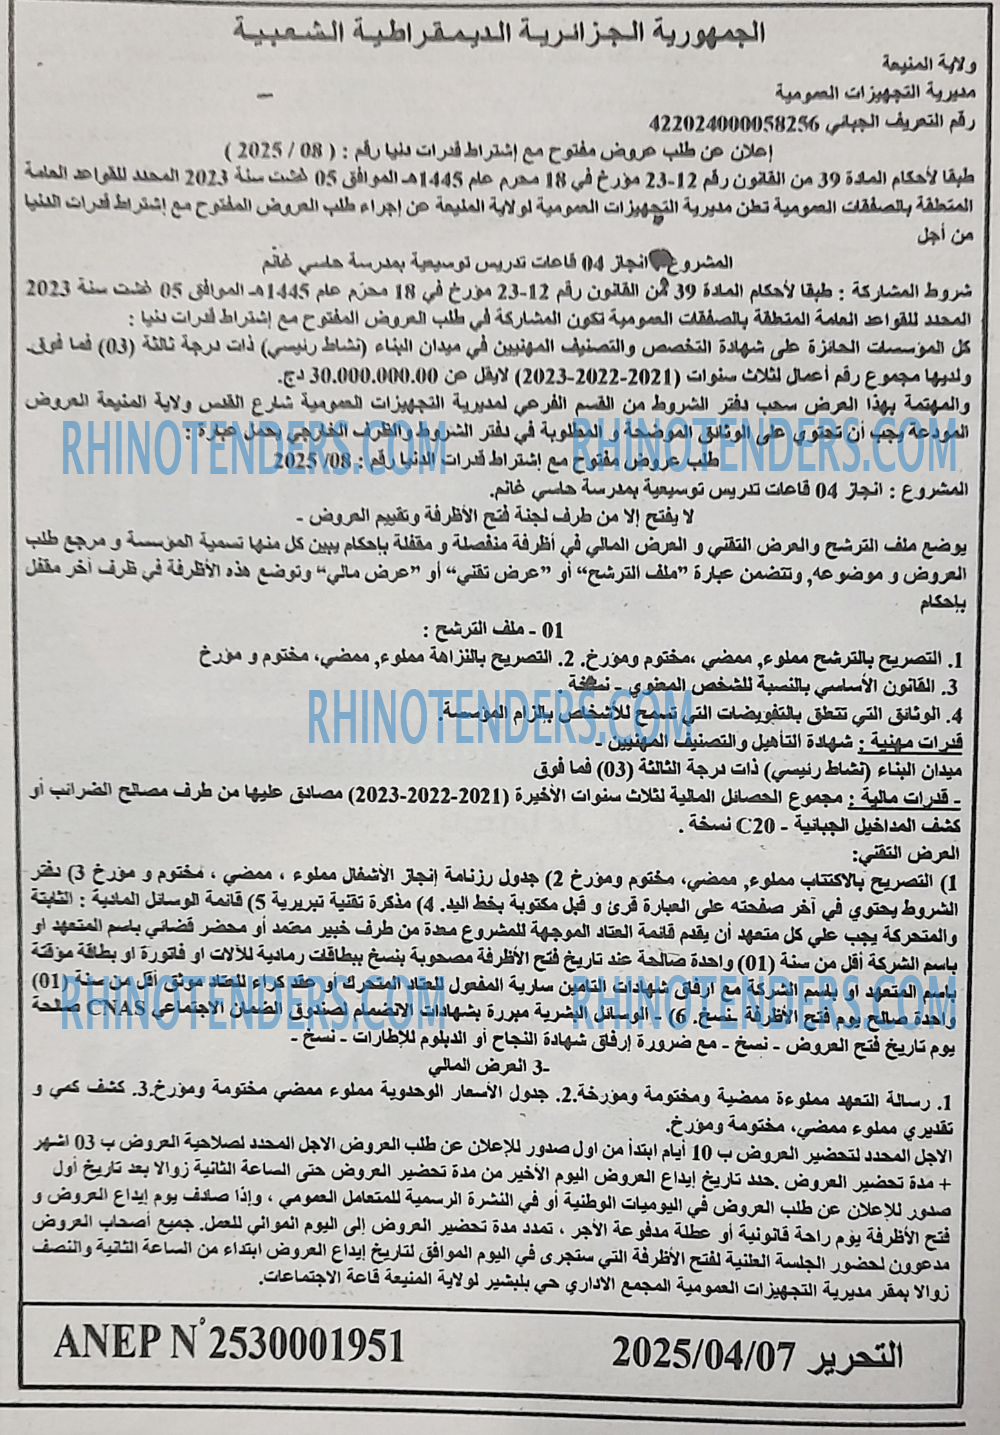 الجمهورية الجزائرية الديمقراطية الشعبية
ولاية المنيعة
مديرية التجهيزات العمومية
رقم التعريف الجبائي 422024000058256
إعلان عن طلب عروض مفتوح مع إشتراط قدرات دنيا رقم : ( 08 / 2025 )
طبقا لأحكام المادة 39 من القانون رقم 12-23 مؤرخ في 18 محرم عام 1445هـ الموافق 05 غشت سنة 2023 المحدد للقواعد العامة
المتعلقة بالصفقات العمومية تعلن مديرية التجهيزات العمومية لولاية المنيعة عن إجراء طلب العروض المفتوح مع إشتراط قدرات الدنيا
من أجل
المشروع انجاز 04 قاعات تدريس توسيعية بمدرسة حاسي غانم
شروط المشاركة : طبقا لأحكام المادة 39 من القانون رقم 12-23 مؤرخ في 18 محرم عام 1445هـ الموافق 05 غشت سنة 2023
المحدد للقواعد العامة المتعلقة بالصفقات العمومية تكون المشاركة في طلب العروض المفتوح مع إشتراط قدرات دنيا :
كل المؤسسات الحائزة على شهادة التخصص والتصنيف المهنيين في ميدان البناء (نشاط رئيسي) ذات درجة ثالثة (03) فما فوق.
ولديها مجموع رقم أعمال لثلاث سنوات (2021-2022-2023) لايقل عن 30.000.000.00 دج.
والمهتمة بهذا العرض سحب دفتر الشروط من القسم الفرعي لمديرية التجهيزات العمومية شارع القدس ولاية المنيعة العروض
المودعة يجب أن تحتوي على الوثائق الموضحة و المطلوبة في دفتر الشروط والظرف الخارجي يحمل عبارة :
طلب عروض مفتوح مع إشتراط قدرات الدنيا رقم : 08/ 2025
المشروع : انجاز 04 قاعات تدريس توسيعية بمدرسة حاسي غانم.
لا يفتح إلا من طرف لجنة فتح الأظرفة وتقييم العروض -
يوضع ملف الترشح والعرض التقني و العرض المالي في أظرفة منفصلة و مقفلة بإحكام يبين كل منها تسمية المؤسسة و مرجع طلب
العروض و موضوعه, وتتضمن عبارة "ملف الترشح" أو "عرض تقني" أو "عرض مالي" وتوضع هذه الأظرفة في ظرف آخر مقفل
بإحكام
01 - ملف الترشح :
1. التصريح بالترشح مملوء, ممضي ،مختوم ومؤرخ. 2. التصريح بالنزاهة مملوء, ممضي، مختوم و مؤرخ
3. القانون الأساسي بالنسبة للشخص المعنوي - نسخة .
4. الوثائق التي تتعلق بالتفويضات التي تسمح للأشخاص بالزام المؤسسة.
قدرات مهنية : شهادة التأهيل والتصنيف المهنيين -
ميدان البناء (نشاط رئيسي) ذات درجة الثالثة (03) فما فوق
- قدرات مالية : مجموع الحصائل المالية لثلاث سنوات الأخيرة (2021-2022-2023) مصادق عليها من طرف مصالح الضرائب أو
كشف المداخيل الجبائية - C20 نسخة .
العرض التقني:
1) التصريح بالاكتتاب مملوء, ممضي، مختوم ومؤرخ 2) جدول رزنامة إنجاز الأشغال مملوء ، ممضي ، مختوم و مؤرخ 3) دفتر
الشروط يحتوي في آخر صفحته على العبارة قرئ و قبل مكتوبة بخط اليد. 4) مذكرة تقنية تبريرية 5) قائمة الوسائل المادية : الثابتة
والمتحركة يجب علي كل متعهد أن يقدم قائمة العتاد الموجهة للمشروع معدة من طرف خبير معتمد أو محضر قضائي باسم المتعهد او
باسم الشركة أقل من سنة (01) واحدة صالحة عند تاريخ فتح الأظرفة مصحوبة بنسخ ببطاقات رمادية للآلات او فاتورة او بطاقة مؤقتة
باسم المتعهد او باسم الشركة مع ارفاق شهادات التامين سارية المفعول للعتاد المتحرك أو عقد كراء للعتاد موثق أقل من سنة (01)
واحدة صالح يوم فتح الأظرفة .نسخ. 6) - الوسائل البشرية مبررة بشهادات الانضمام لصندوق الضمان الاجتماعي CNAS صالحة
يوم تاريخ فتح العروض - نسخ - مع ضرورة إرفاق شهادة النجاح أو الدبلوم للإطارات - نسخ -
3- العرض المالي
1. رسالة التعهد مملوءة ممضية ومختومة ومؤرخة.2. جدول الأسعار الوحدوية مملوء ممضي مختومة ومؤرخ.3. كشف كمي و
تقديري مملوء ممضي، مختومة ومؤرخ.
الاجل المحدد لتحضير العروض ب 10 أيام ابتدأ من اول صدور للإعلان عن طلب العروض الاجل المحدد لصلاحية العروض ب 03 اشهر
+ مدة تحضير العروض .حدد تاريخ إيداع العروض اليوم الأخير من مدة تحضير العروض حتى الساعة الثانية زوالا بعد تاريخ أول
صدور للإعلان عن طلب العروض في اليوميات الوطنية أو في النشرة الرسمية للمتعامل العمومي ، وإذا صادف يوم إيداع العروض و
فتح الأظرفة يوم راحة قانونية أو عطلة مدفوعة الأجر ، تمدد مدة تحضير العروض إلى اليوم الموالي للعمل. جميع أصحاب العروض
مدعوون لحضور الجلسة العلنية لفتح الأظرفة التي ستجرى في اليوم الموافق لتاريخ إيداع العروض ابتداء من الساعة الثانية والنصف
زوالا بمقر مديرية التجهيزات العمومية المجمع الاداري حي بلبشير لولاية المنيعة قاعة الاجتماعات.
التحرير 2025/04/07
ANEP N° 2530001951
RHINOTENDERS.COM
RHINOTENDERS.COM
RHINOTENDERS.COM
RHINOTENDERS.COM
RHINOTENDERS.COM